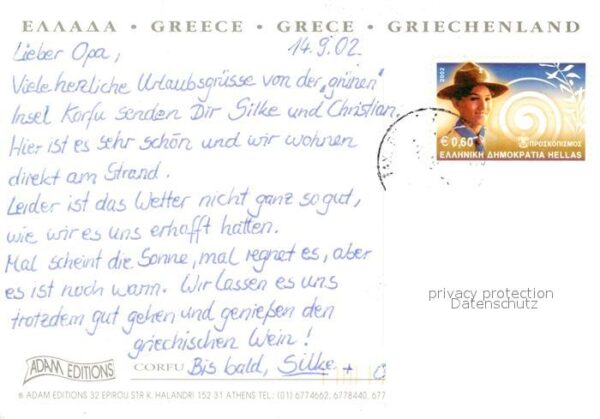 ΕΛΛΑΔΑ • GREECE • GRECE • GRIECHENLAND •
Lieber Opa, 14.9.02.
Viele herzliche Urlaubsgrüsse von der „grünen"
Insel Korfu senden Dir Silke und Christian.
Hier ist es sehr schön und wir wohnen
direkt am Strand.
Leider ist das Wetter nicht ganz so gut,
wie wir es uns erhofft hatten.
Mal scheint die Sonne, mal regnet es, aber
es ist noch warm. Wir lassen es uns
trotzdem gut gehen und genießen den
griechischen Wein!
Bis bald, Silke +
2002
€ 0,60 ΠΡΟΣΚΟΠΙΣΜΟΣ
ΕΛΛΗΝΙΚΗ ΔΗΜΟΚΡΑΤΙΑ HELLAS
privacy protection
Datenschutz
ADAM EDITIONS CORFU
® ADAM EDITIONS 32 EPIROU STR K. HALANDRI 152 31 ATHENS TEL: (01) 6774662, 6778440, 677